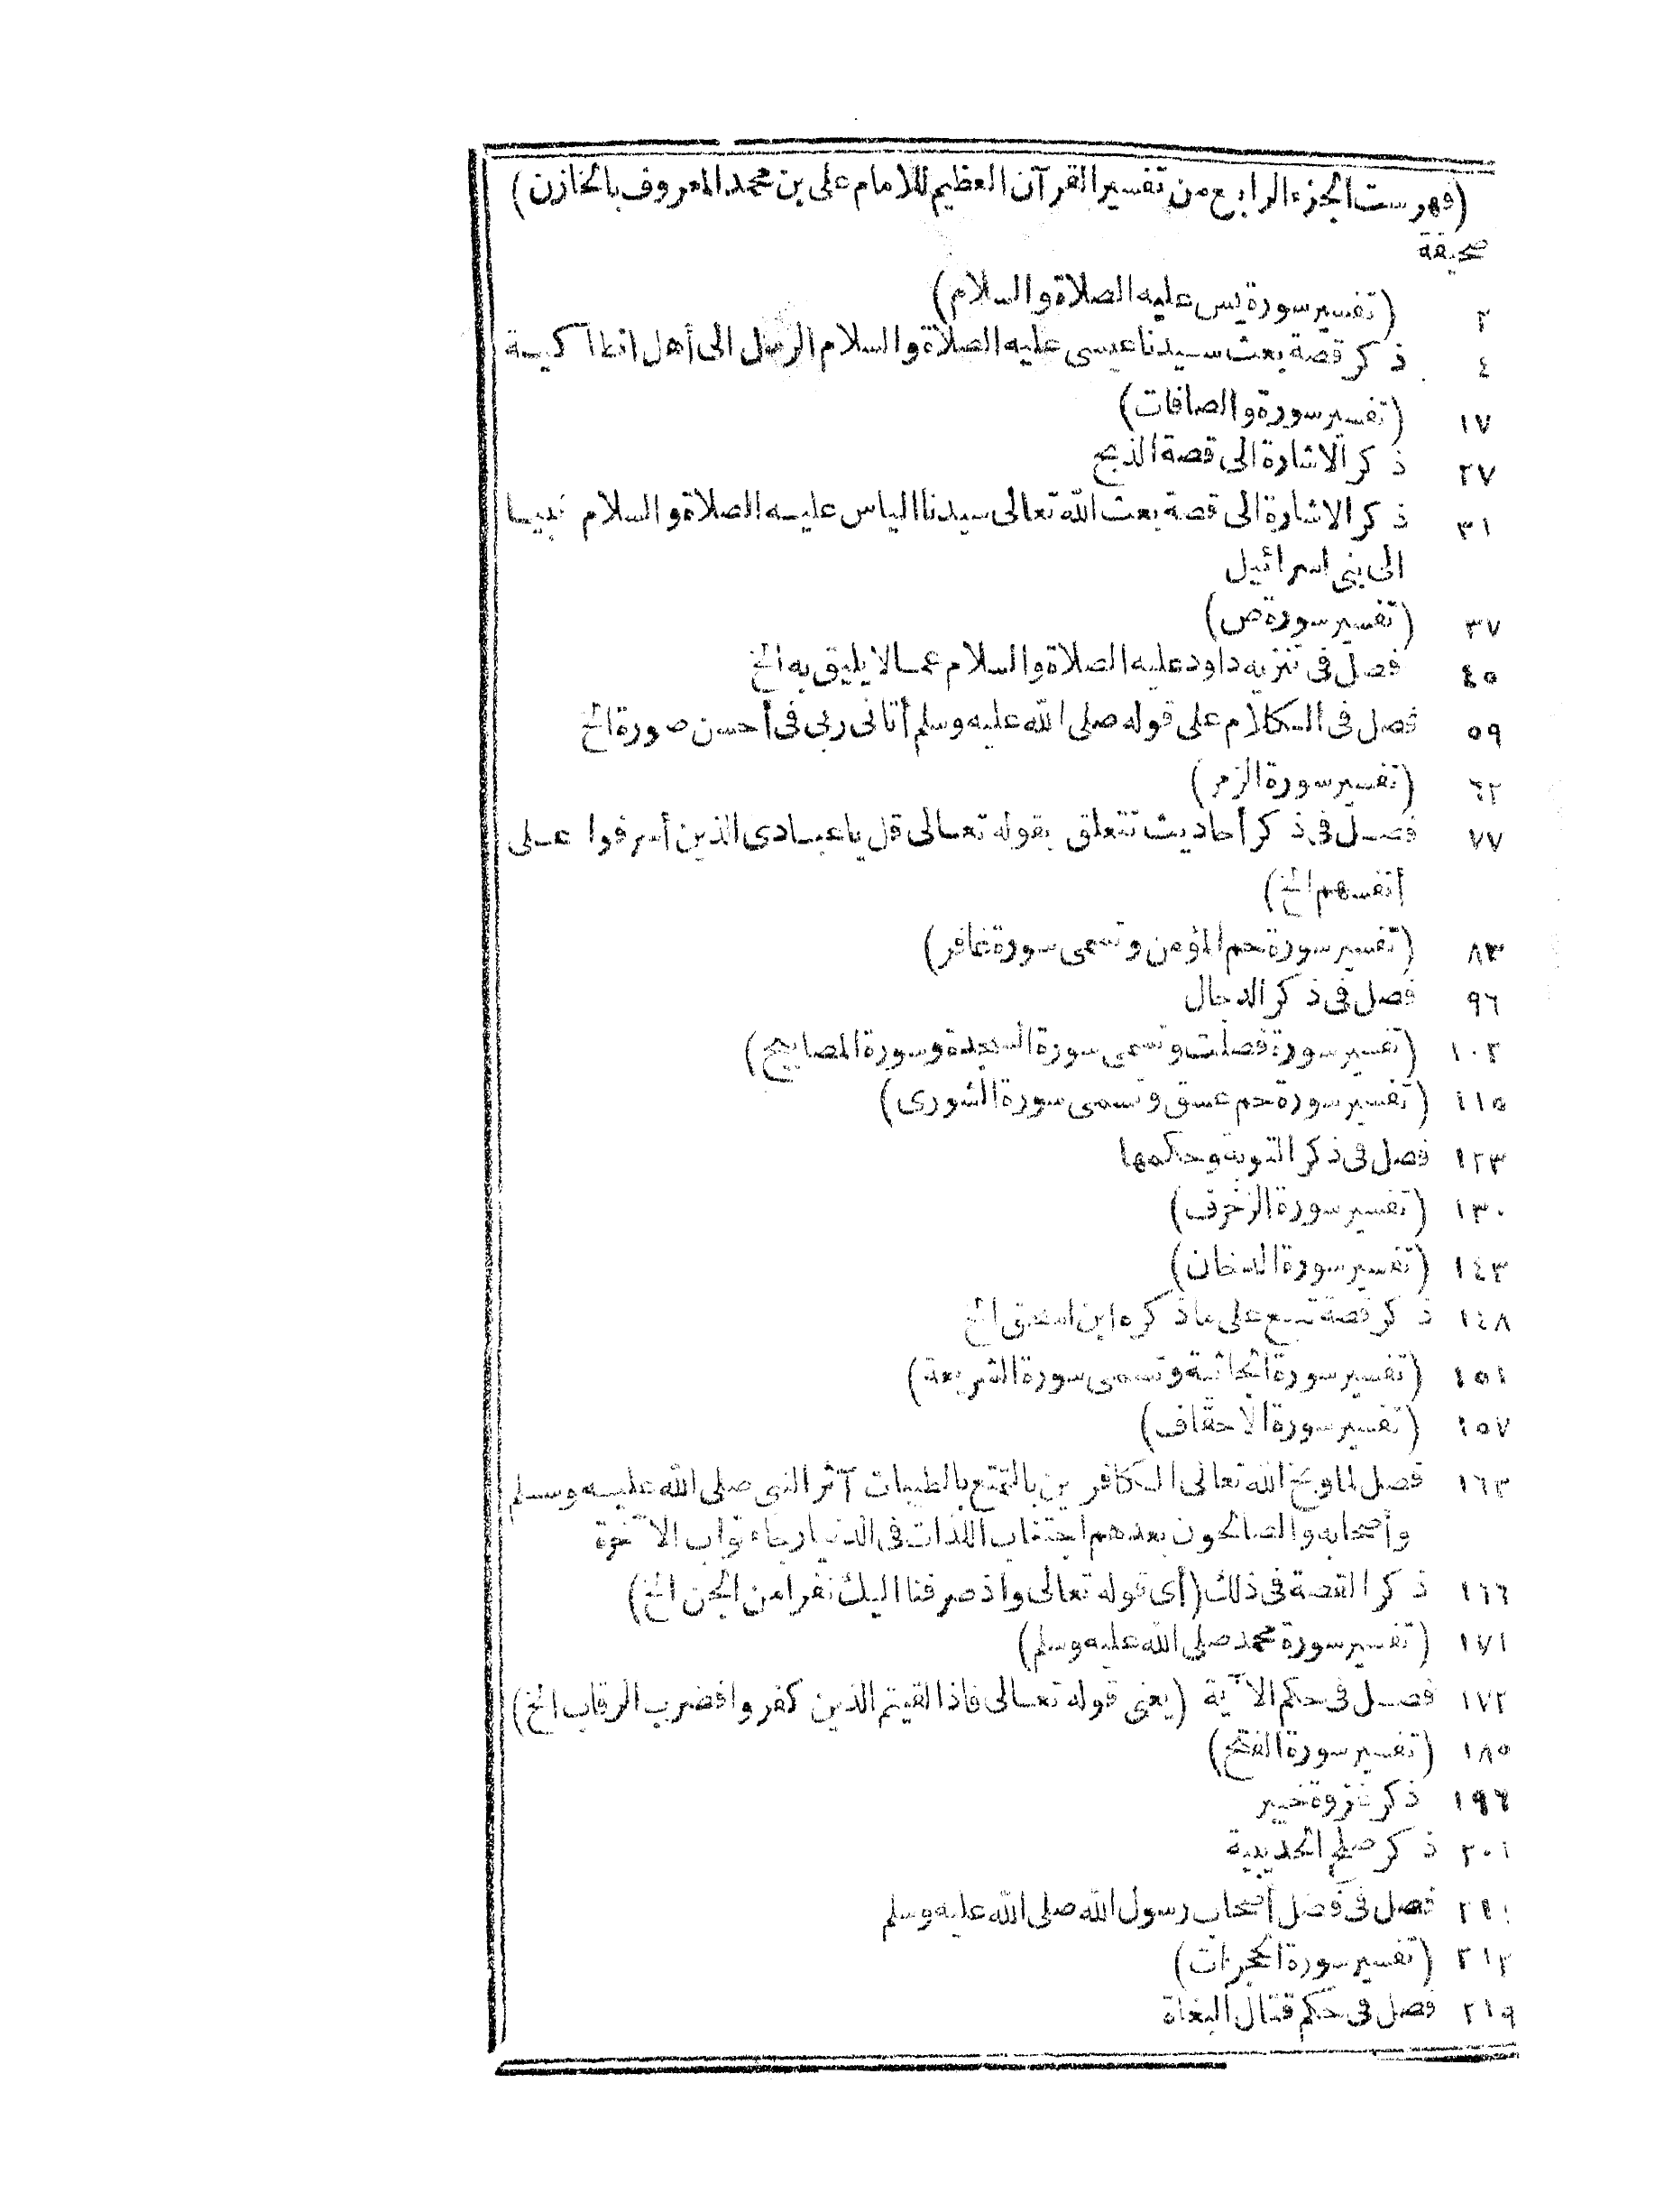 (فهرست الجزء الرابع من تفسير القرآن العظيم للامام على بن محمد المعروف بالخازن)
صحيفة
٢ (تفسير سورة يس عليه الصلاة والسلام)
٤ ذكر قصة بعث سيدنا عيسى عليه الصلاة والسلام الرسل الى أهل انطاكية
١٧ (تفسير سورة والصافات)
٢٧ ذكر الاشارة الى قصة الذبح
٣١ ذكر الاشارة الى قصة بعث الله تعالى سيدنا الياس عليه الصلاة والسلام نبيا
الى بنى اسرائيل
٣٧ (تفسير سورة ص)
٤٥ فصل فى تنزيه داود عليه الصلاة والسلام عما لا يليق به الخ
٥٩ فصل فى الكلام على قوله صلى الله عليه وسلم أتانى ربى فى أحسن صورة الخ
٦٢ (تفسير سورة الزمر)
٧٧ فصل فى ذكر أحاديث تتعلق بقوله تعالى قل ياعبادى الذين أسرفوا على
أنفسهم الخ)
٨٣ (تفسير سورة حم المؤمن وتسمى سورة غافر)
٩٦ فصل فى ذكر الدجال
١٠٢ (تفسير سورة فصلت وتسمى سورة السجدة وسورة المصابيح)
١١٥ (تفسير سورة حم عسق وتسمى سورة الشورى)
١٢٣ فصل فى ذكر التوبة وحكمها
١٣٠ (تفسير سورة الزخرف)
١٤٣ (تفسير سورة الدخان)
١٤٨ ذكر قصة تبع على ماذكره ابن اسحق الخ
١٥١ (تفسير سورة الجاثية وتسمى سورة الشريعة)
١٥٧ (تفسير سورة الاحقاف)
١٦٣ فصل لما وبخ الله تعالى الكافرين بالتمتع بالطيبات آثر النبى صلى الله عليه وسلم
وأصحابه والصالحون بعدهم اجتناب اللذات فى الدنيا رجاء ثواب الآخرة
١٦٦ ذكر القصة فى ذلك (أى قوله تعالى واذ صرفنا اليك نفرا من الجن الخ)
١٧١ (تفسير سورة محمد صلى الله عليه وسلم)
١٧٢ فصل فى حكم الآية (يعنى قوله تعالى فاذا لقيتم الذين كفروا فضرب الرقاب الخ)
١٨٥ (تفسير سورة الفتح)
١٩٦ ذكر غزوة خيبر
٢٠١ ذكر صلح الحديبية
٢١١ فصل فى فضل أصحاب رسول الله صلى الله عليه وسلم
٢١٢ (تفسير سورة الحجرات)
٢١٩ فصل فى حكم قتال البغاة